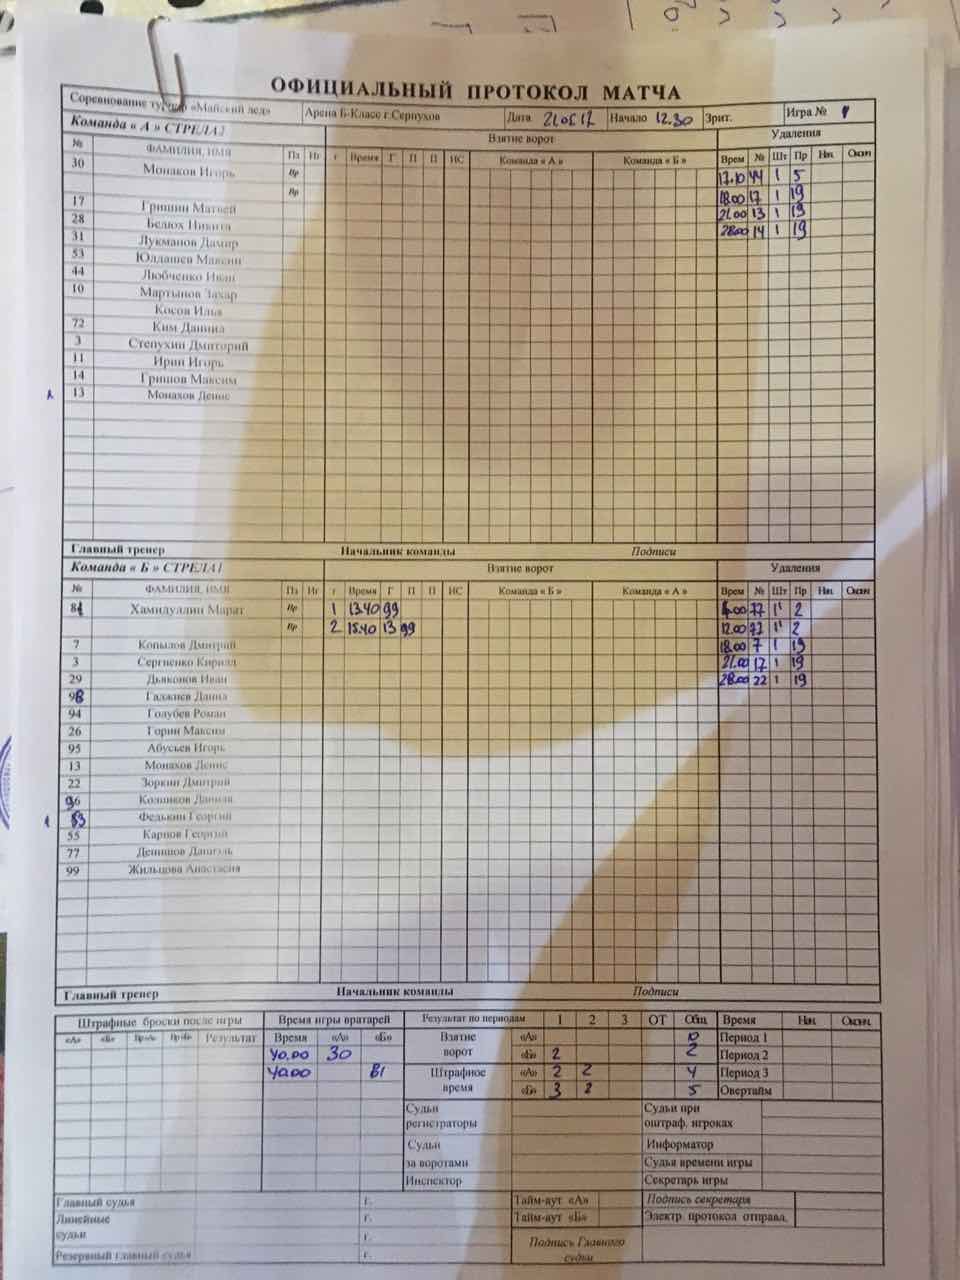 ОФИЦИАЛЬНЫЙ ПРОТОКОЛ МАТЧА
Соревнование турнир «Майский лед» Арена Б-Класс г.Серпухов Дата 21.05.17 Начало 12.30 Зрит. Игра №
Команда « А » СТРЕЛА2 Взятие ворот Удаления
№ ФАМИЛИЯ, ИМЯ Пз Иг г Время Г П П ИС Команда « А » Команда « Б » Врем № Шт Пр Нач. Оконч
30 Монаков Игорь Вр 17.10 44 1 5
Вр 18.00 17 1 19
17 Гришин Матвей 21.00 13 1 19
28 Белюх Никита 28.00 14 1 19
31 Лукманов Дамир
53 Юлдашев Максим
44 Любченко Иван
10 Мартынов Захар
Косов Илья
72 Ким Даниил
3 Степухин Дмиторий
11 Ирин Игорь
14 Гришов Максим
13 Монахов Денис
Главный тренер Начальник команды Подписи
Команда « Б » СТРЕЛА1 Взятие ворот Удаления
№ ФАМИЛИЯ, ИМЯ Пз Иг г Время Г П П ИС Команда « Б » Команда « А » Врем № Шт Пр Нач. Оконч
81 Хамидуллин Марат Вр 1 13.40 99 77 1' 2
Вр 2 15.40 13 99 12.00 77 1' 2
7 Копылов Дмитрий 18.00 7 1 19
3 Сергиенко Кирилл 21.00 17 1 19
29 Дьяконов Иван 28.00 22 1 19
98 Гаджиев Данил
94 Голубев Роман
26 Горин Максим
95 Абусьев Игорь
13 Монахов Денис
22 Зоркин Дмитрий
96 Колпиков Данила
Федькин Георгий
55 Карпов Георгий
77 Денишов Даниэль
99 Жильцова Анастасия
Главный тренер Начальник команды Подписи
Штрафные броски после игры Время игры вратарей Результат по периодам 1 2 3 ОТ Общ Время Нач. Оконч.
«А» «Б» Вр«А» Вр«Б» Результат Время «А» «Б» Взятие ворот «А» 0 Период 1
40.00 30 «Б» 2 2 Период 2
40.00 81 Штрафное время «А» 2 2 4 Период 3
«Б» 3 2 5 Овертайм
Судьи регистраторы Судьи при оштраф. игроках
Судьи за воротами Информатор
Судья времени игры
Инспектор Секретарь игры
Главный судья г. Тайм-аут «А» Подпись секретаря
Линейные судьи г. Тайм-аут «Б» Электр. протокол отправа.
г. Подпись Главного судьи
Резервный главный судья г.